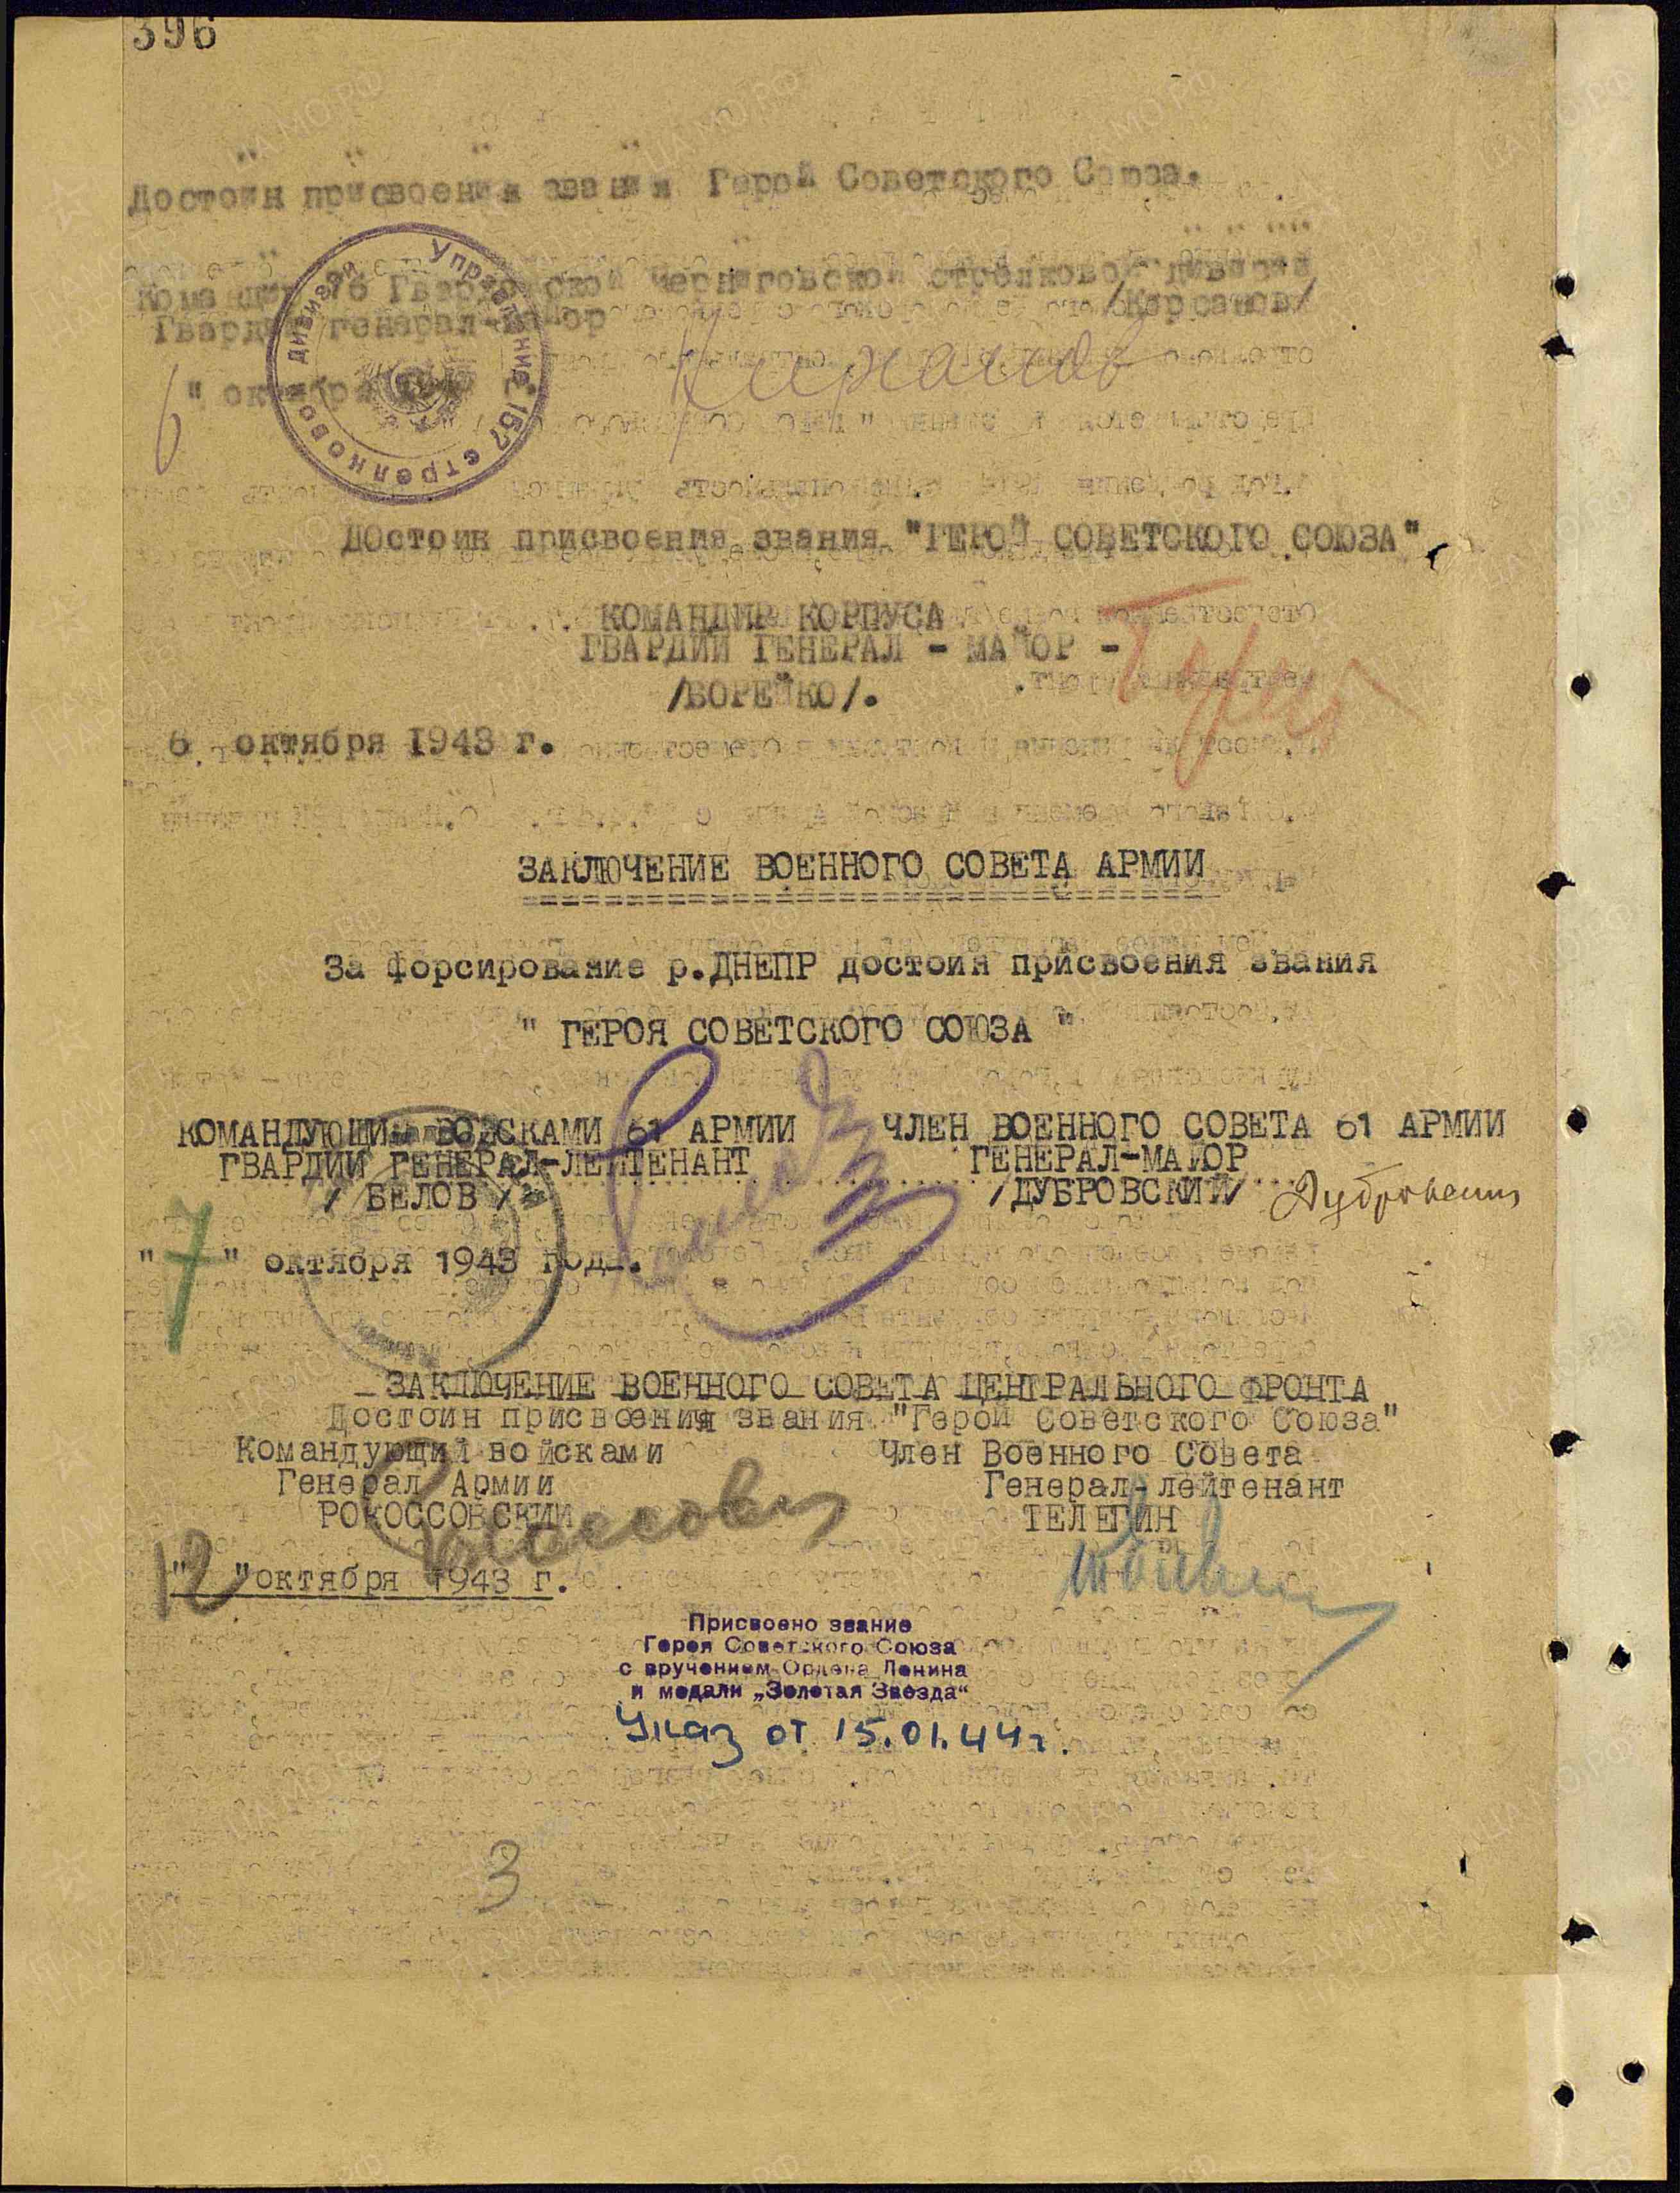 396
Достоин присвоения звания Герой Советского Союза.
Командир 76 Гвардейской Черниговской стрелковой дивизии
Гвардии генерал-майор /Кирсанов/
6 " октября
Управление 157 стрелковой дивизии
Кирсанов
Достоин присвоения звания "ГЕРОЙ СОВЕТСКОГО СОЮЗА"
КОМАНДИР КОРПУСА
ГВАРДИИ ГЕНЕРАЛ - МАЙОР -
/БОРЕЙКО/.
6 октября 1943 г.
ЗАКЛЮЧЕНИЕ ВОЕННОГО СОВЕТА АРМИИ
За форсирование р.ДНЕПР достоин присвоения звания
" ГЕРОЯ СОВЕТСКОГО СОЮЗА "
КОМАНДУЮЩИЙ ВОЙСКАМИ 61 АРМИИ
ГВАРДИИ ГЕНЕРАЛ-ЛЕЙТЕНАНТ
/ БЕЛОВ /
ЧЛЕН ВОЕННОГО СОВЕТА 61 АРМИИ
ГЕНЕРАЛ-МАЙОР
/ДУБРОВСКИЙ/ Дубровский
"7" октября 1943 года.
ЗАКЛЮЧЕНИЕ ВОЕННОГО СОВЕТА ЦЕНТРАЛЬНОГО ФРОНТА
Достоин присвоения звания "Герой Советского Союза"
Командующий войсками
Генерал Армии
РОКОССОВСКИЙ
Член Военного Совета
Генерал-лейтенант
ТЕЛЕГИН
"12" октября 1943 г.
Присвоено звание
Героя Советского Союза
с вручением Ордена Ленина
и медали „Золотая Звезда“
Указ от 15.01.44г.
3